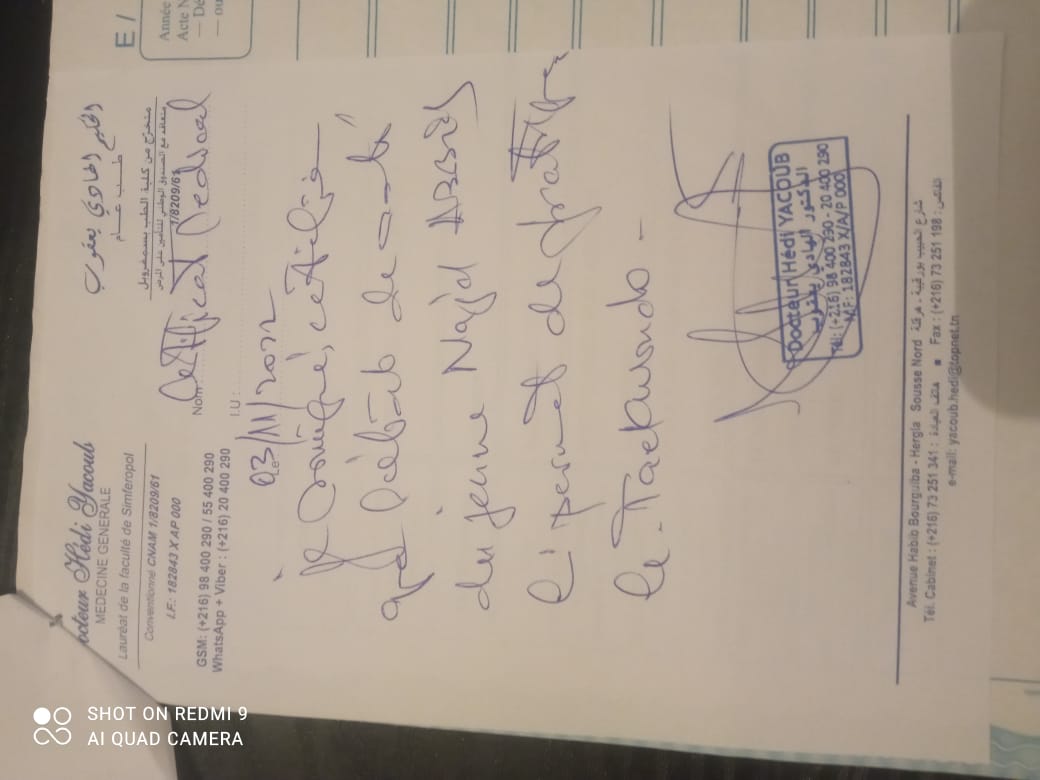 Docteur Hédi Yacoub
MEDECINE GENERALE
Lauréat de la faculté de Simferopol
Conventionné CNAM 1/8209/61
I.F.: 182843 X AP 000
GSM: (+216) 98 400 290 / 55 400 290
WhatsApp + Viber : (+216) 20 400 290
الحكيم الهادي يعقوب
طبيب عام
متخرّج من كلية الطب بسمفروبل
متعاقد مع الصندوق الوطني للتأمين على المرض
1/8209/61
Nom:
Certificat Medical
I.U :
Le 03/11/2022
je soussigné, certifie
que l'état de santé
du jeune Najd
lui permet de pratiquer
le Taekwondo -
Docteur Hédi YACOUB
الدكتور الهادي يعقوب
Tél: (+216) 98 400 290 - 20 400 290
MF: 182843 X/A/P 000
Avenue Habib Bourguiba - Hergla Sousse Nord شارع الحبيب بورقيبة ـ هرقلة
Tél. Cabinet : (+216) 73 251 341 : هاتف العيادة ■ Fax : (+216) 73 251 198 : الفاكس
e-mail: yacoub.hedi@topnet.tn
E /
Année
Acte N
— Dé
— ou
SHOT ON REDMI 9
AI QUAD CAMERA